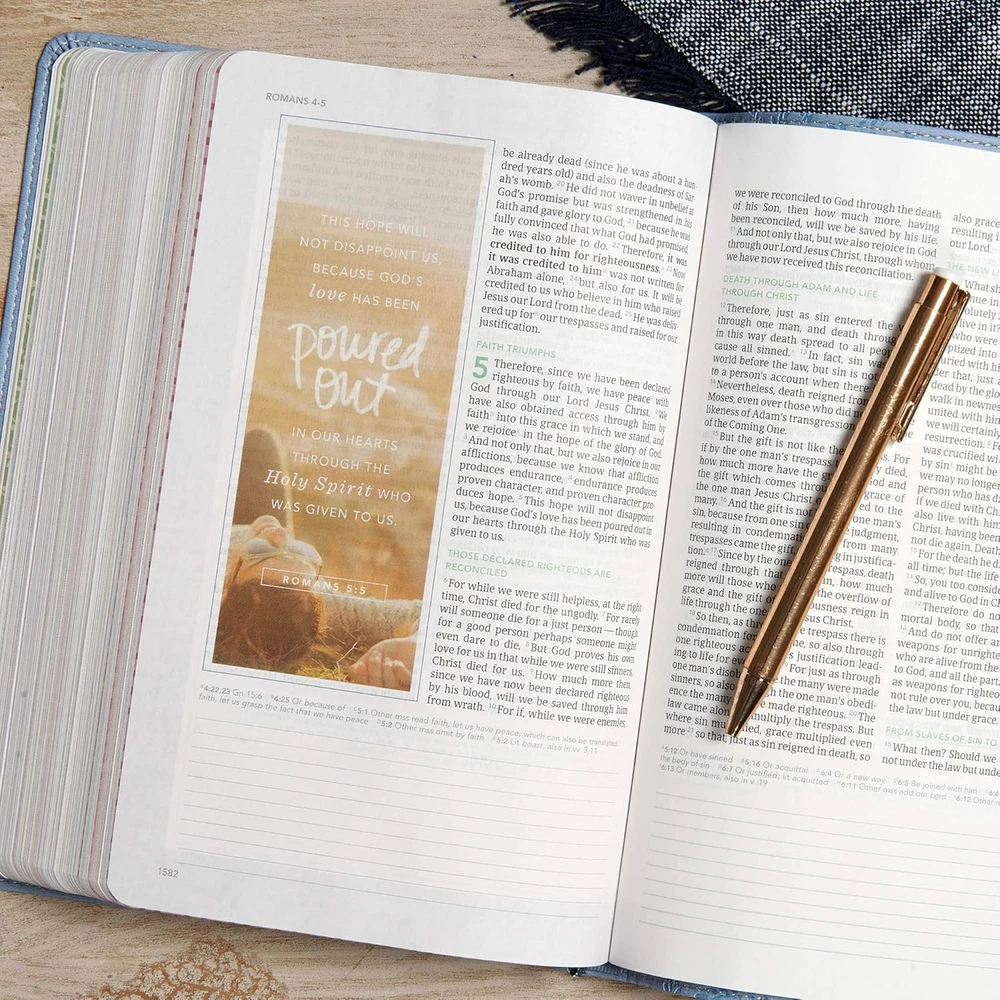 ROMANS 4-5
THIS HOPE WILL
NOT DISAPPOINT US,
BECAUSE GOD'S
love HAS BEEN
poured
out
IN OUR HEARTS
THROUGH THE
Holy Spirit WHO
WAS GIVEN TO US.
ROMANS 5:5
be already dead (since he was about a hun-
dred years old) and also the deadness of Sar-
ah's womb. 20 He did not waver in unbelief at
God's promise but was strengthened in his
faith and gave glory to God, 21 because he was
fully convinced that what God had promised,
he was also able to do. 22 Therefore, it was
credited to him for righteousness. 23 Now
it was credited to him was not written for
Abraham alone, 24 but also for us. It will be
credited to us who believe in him who raised
Jesus our Lord from the dead. 25 He was deliv-
ered up for our trespasses and raised for our
justification.
FAITH TRIUMPHS
5 Therefore, since we have been declared
righteous by faith, we have peace with
God through our Lord Jesus Christ. 2 We
have also obtained access through him by
faith into this grace in which we stand, and
we rejoice in the hope of the glory of God.
3 And not only that, but we also rejoice in our
afflictions, because we know that affliction
produces endurance, 4 endurance produces
proven character, and proven character pro-
duces hope. 5 This hope will not disappoint
us, because God's love has been poured out in
our hearts through the Holy Spirit who was
given to us.
THOSE DECLARED RIGHTEOUS ARE
RECONCILED
6 For while we were still helpless, at the right
time, Christ died for the ungodly. 7 For rarely
will someone die for a just person — though
for a good person perhaps someone might
even dare to die. 8 But God proves his own
love for us in that while we were still sinners,
Christ died for us. 9 How much more then,
since we have now been declared righteous
by his blood, will we be saved through him
from wrath. 10 For if, while we were enemies,
4:22,23 Gn 15:6 4:25 Or because of 5:1 Other mss read faith, let us have peace, which can also be translated
faith, let us grasp the fact that we have peace 5:2 Other mss omit by faith 5:2 Lit boast, also in vv. 3,11
1582
we were reconciled to God through the death
of his Son, then how much more, having
been reconciled, will we be saved by his life.
11 And not only that, but we also rejoice in God
through our Lord Jesus Christ, through whom
we have now received this reconciliation.
DEATH THROUGH ADAM AND LIFE
THROUGH CHRIST
12 Therefore, just as sin entered the
through one man, and death through
in this way death spread to all
cause all sinned. 13 In fact, sin was
world before the law, but sin is not
to a person's account when there
14 Nevertheless, death reigned from
Moses, even over those who did
likeness of Adam's transgression
of the Coming One.
15 But the gift is not like the
if by the one man's trespass
how much more have the
the gift which comes through
the one man Jesus Christ
many. 16 And the gift is not
sin, because from one sin
resulting in condemnation
trespasses came the gift,
tion. 17 Since by the one
reigned through that
more will those who
grace and the gift of
life through the one
18 So then, as
condemnation for
one righteous act
ing to life for
one man's
sinners, so also
ence the many
law came along
where sin
more 21 so that, just as sin reigned in death, so
For
died,
grace of
one man's
judgment,
from many
in justifica-
trespass, death
how much
the overflow of
reign in
Christ.
trespass there is
so also through
justification lead-
For just as through
the many were made
the one man's obedi-
made righteous. 20 The
multiply the trespass. But
grace multiplied even
5:12 Or have sinned 5:16 Or acquittal 6:4 Or a new way 6:5 Be joined with him
the body of sin 6:7 Or justified; lit acquitted 6:11 Other mss add our Lord 6:12 Other
6:13 Or members, also in v. 19
also grace
resulting
our Lord.
THE NEW
What
live in
who were
der that, just
dead by the
walk in
united with
we will
resurrection.
was crucified
by sin might be
we may no longer
person who has
if we died with
also live with him,
Christ,
not die again. Death
10 For the death he
all time; but the life
11 So, you too consider
and alive to God in
12 Therefore do not
mortal body, so that
13 And do not offer any
weapons for unrighteous
who are alive from the
all the parts
as weapons for righteous
not rule over you, because
the law but under grace.
FROM SLAVES OF SIN TO
15 What then? Should we
not under the law but under